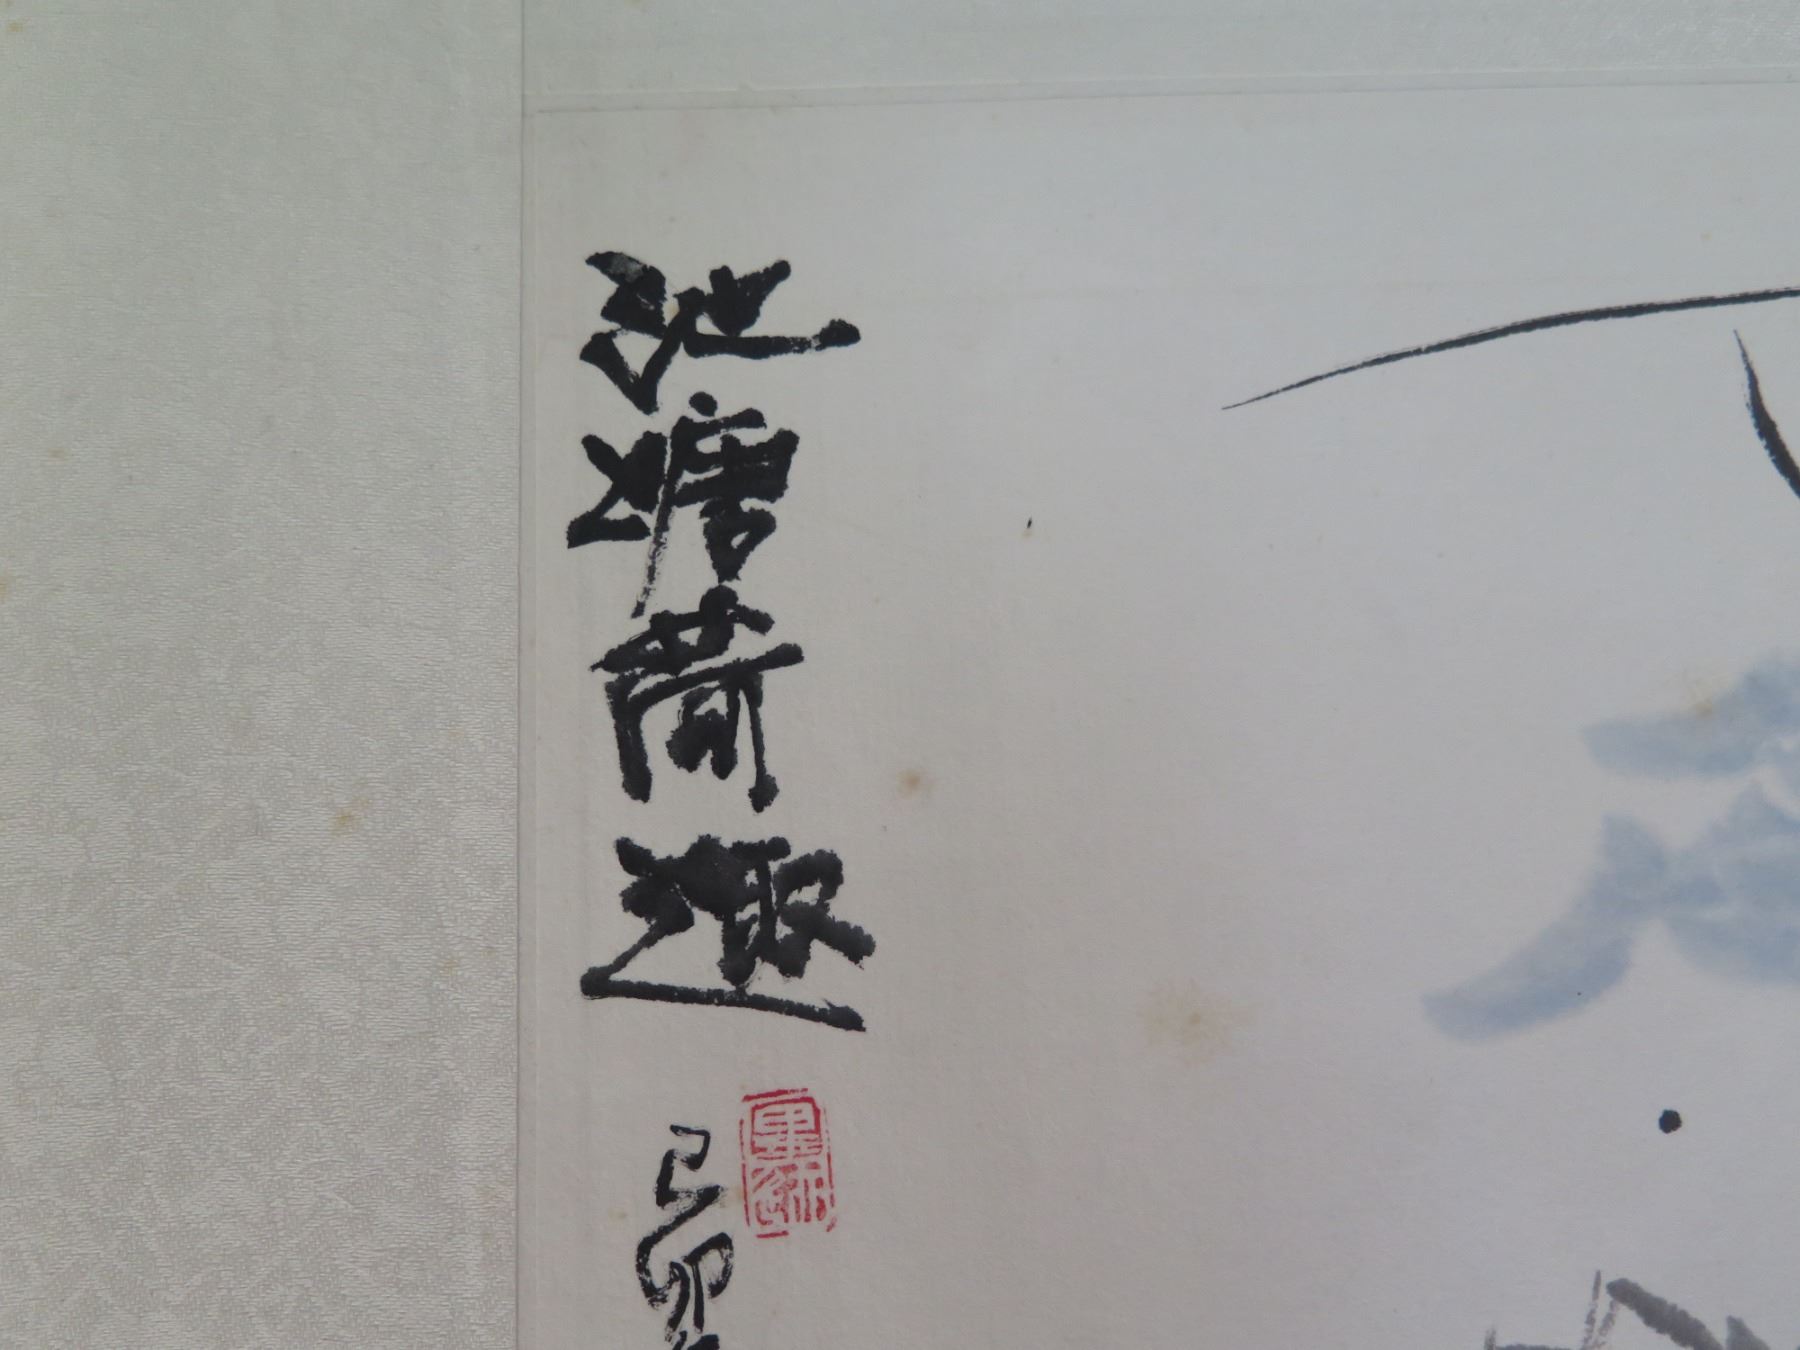 池塘荷趣
己卯